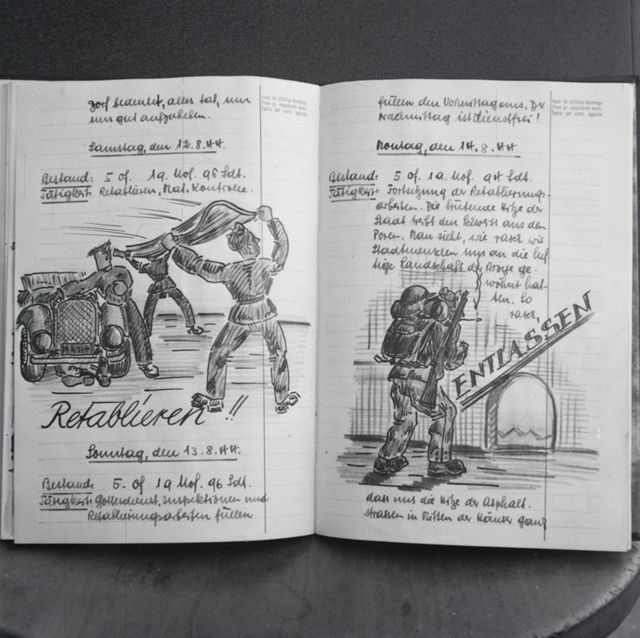 Dorf bedeutet, alles tat, um
uns gut aufzuheben.
Samstag, den 12.8.44.
Bestand: 5 of. 19 Uof. 96 Sdt.
Tätigkeit: Retablieren, Mat. Kontrolle.
Retablieren !!
Sonntag, den 13.8.44.
Bestand: 5 of 19 Uof. 96 Sdt.
Tätigkeit: Gottesdienst, Inspektionen und
Retablierungsarbeiten füllen
füllen den Vormittag aus. Der
Nachmittag ist dienstfrei!
Montag, den 14.8.44.
Bestand: 5 of. 19 Uof. 94 Sdt.
Tätigkeit: Fortsetzung der Retablierungs-
arbeiten. Die brütende Hitze der
Stadt treibt den Schweiss aus den
Poren. Man sieht, wie rasch wir
Stadtmenschen uns an die luf-
tige Landschaft der Broye ge-
wöhnt hat-
ten. So
rasch,
ENTLASSEN
dass uns die Hitze der Asphalt-
strassen in Mitten der Häuser ganz